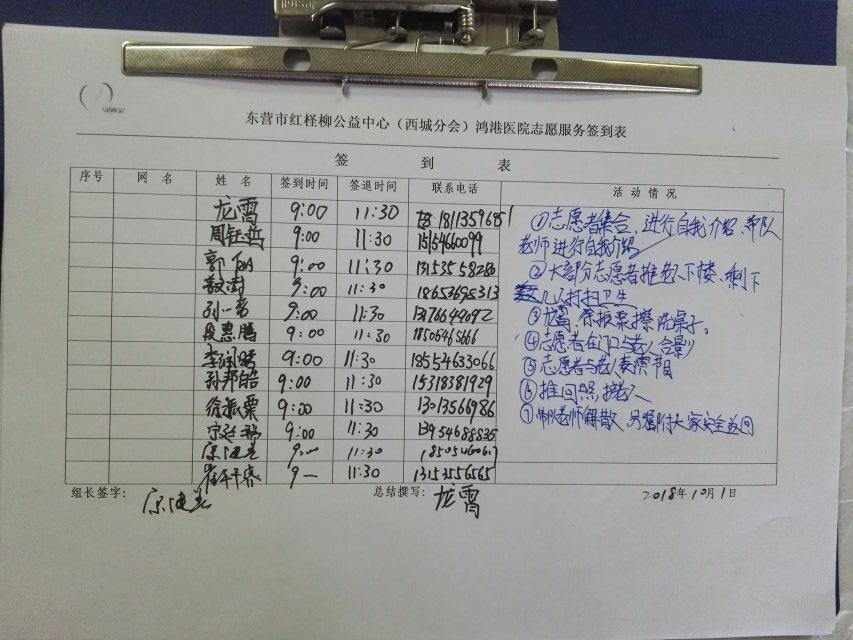 东营市红柽柳公益中心（西城分会）鸿港医院志愿服务签到表
签 到 表
序号 网 名 姓 名 签到时间 签退时间 联系电话 活 动 情 况
龙霄 9:00 11:30 18113596851
周钰哲 9:00 11:30 15154660099
郭 9:00 11:30 13153558286
9:00 11:30 18653695313
孙一 9:00 11:30 13176649092
段惠腾 9:00 11:30 18505465666
李润晗 9:00 11:30 18554633066
孙邦皓 9:00 11:30 15318381929
徐振粟 9:00 11:30 13013561986
9:00 11:30 13954688835
9:00 11:30
9— 11:30 13153556565
①志愿者集合，进行自我介绍、带队
老师进行自我介绍
②大部分志愿者推老人下楼、剩下
几人打扫卫生
③龙霄，徐振粟擦洗桌子。
④志愿者在门口与老人合影
⑤志愿者与老人表演节目
⑥推回
⑦老师解散，另嘱咐大家安全返回
组长签字： 总结撰写：龙霄 2018年10月1日